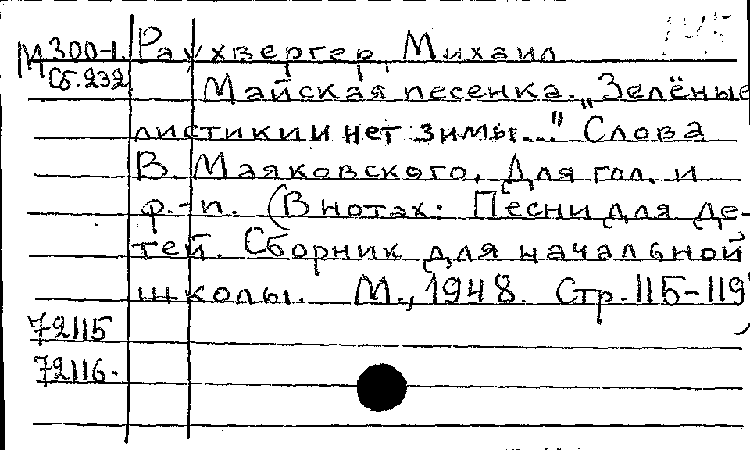 М 300-1. Раухвергер, Михаил
Сб.232 Майская песенка. „Зелёные
листики и нет зимы..." Слова
В. Маяковского. Для гол. и
ф.-п. (В нотах: Песни для де-
тей. Сборник для начальной
школы. М., 1948. Стр. 115-119)
72115
72116.